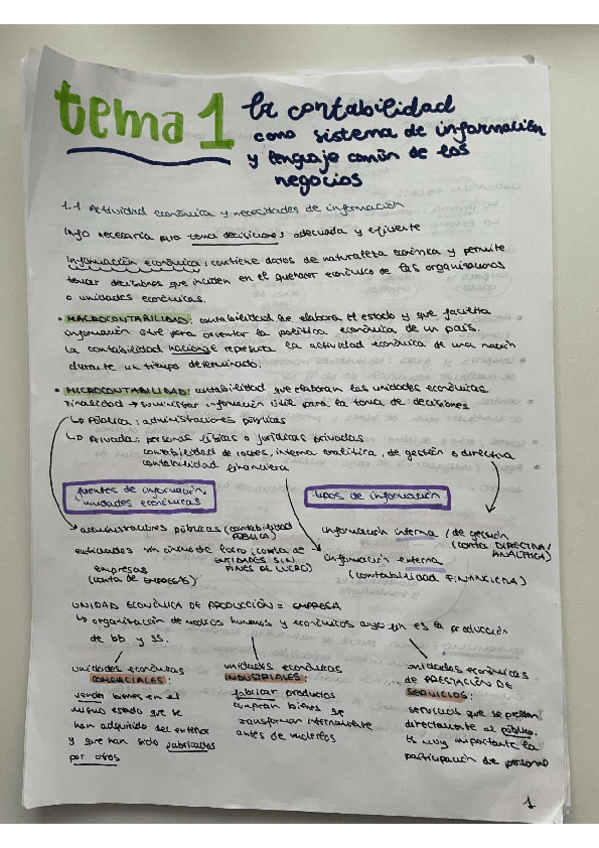 tema 1 la contabilidad
como sistema de información
y lenguaje común de los
negocios
1.1 Actividad económica y necesidades de información
Info necesaria para toma decisiones adecuada y eficiente
Información económica: contiene datos de naturaleza económica y permite
tomar decisiones que inciden en el quehacer económico de las organizaciones
o unidades económicas.
• MACROCONTABILIDAD: contabilidad que elabora el estado y que facilita
información útil para orientar la política económica de un país.
La contabilidad nacional representa la actividad económica de una nación
durante un tiempo determinado.
• MICROCONTABILIDAD: contabilidad que elaboran las unidades económicas.
Finalidad → suministrar información útil para la toma de decisiones
↳ Pública: administraciones públicas
↳ Privada: personas físicas o jurídicas privadas
contabilidad de costes, interna analítica, de gestión o directiva
contabilidad financiera
fuentes de información. unidades económicas
tipos de información
administraciones públicas (contabilidad PÚBLICA)
entidades sin ánimo de lucro (conta de ENTIDADES SIN FINES DE LUCRO)
empresas
(conta de EMPRESAS)
información interna / de gestión
(conta DIRECTIVA/ ANALÍTICA)
información externa
(contabilidad FINANCIERA)
UNIDAD ECONÓMICA DE PRODUCCIÓN = EMPRESA
↳ organización de medios humanos y económicos cuyo fin es la producción
de bb y ss.
unidades económicas
COMERCIALES:
venden bienes en el
mismo estado que se
han adquirido del exterior
y que han sido fabricados
por otros
unidades económicas
INDUSTRIALES:
fabricar productos
compran bienes se
transforman internamente
antes de venderlos
unidades económicas
de PRESTACIÓN DE
SERVICIOS:
servicios que se prestan
directamente al público.
Es muy importante la
participación de personas
1